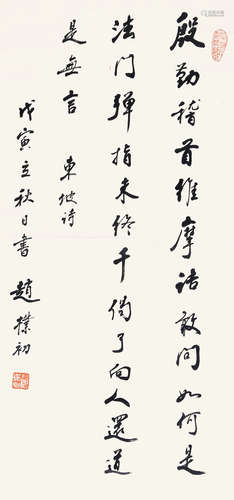 殷勤稽首维摩诘敢问如何是
法门弹指未终千偈了向人还道
是無言 東坡诗
戊寅立秋日書 趙樸初